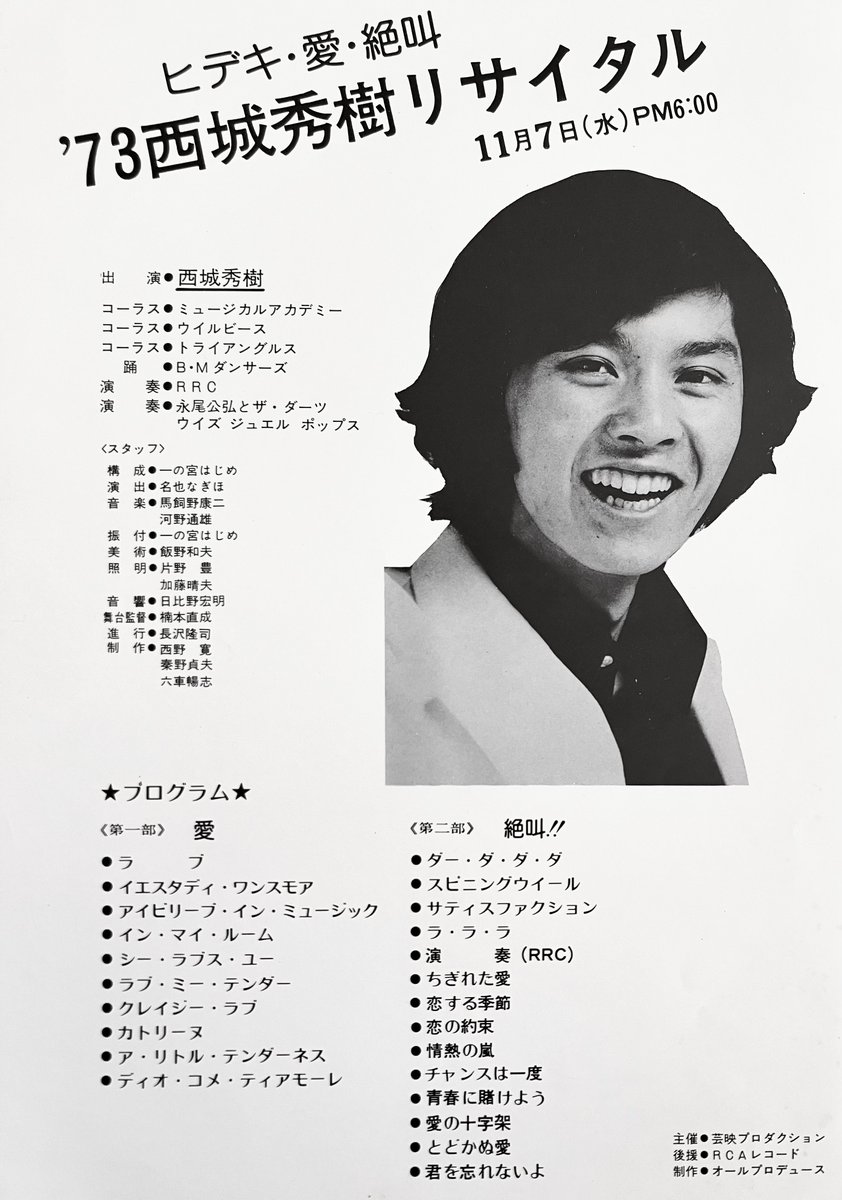 ヒデキ・愛・絶叫
'73西城秀樹リサイタル
11月7日(水)PM6:00
出演●西城秀樹
コーラス●ミュージカルアカデミー
コーラス●ウイルビース
コーラス●トライアングルス
踊●B・Mダンサーズ
演奏●RRC
演奏●永尾公弘とザ・ダーツ
ウイズ ジュエル ポップス
〈スタッフ〉
構成●一の宮はじめ
演出●名也なぎほ
音楽●馬飼野康二
河野通雄
振付●一の宮はじめ
美術●飯野和夫
照明●片野 豊
加藤晴夫
音響●日比野宏明
舞台監督●楠本直成
進行●長沢隆司
制作●西野 寛
秦野貞夫
六車暢志
★プログラム★
《第一部》 愛
●ラブ
●イエスタディ・ワンスモア
●アイビリーブ・イン・ミュージック
●イン・マイ・ルーム
●シー・ラブス・ユー
●ラブ・ミー・テンダー
●クレイジー・ラブ
●カトリーヌ
●ア・リトル・テンダーネス
●ディオ・コメ・ティアモーレ
《第二部》 絶叫!!
●ダー・ダ・ダ・ダ
●スピニングウイール
●サティスファクション
●ラ・ラ・ラ
●演奏(RRC)
●ちぎれた愛
●恋する季節
●恋の約束
●情熱の嵐
●チャンスは一度
●青春に賭けよう
●愛の十字架
●とどかぬ愛
●君を忘れないよ
主催●芸映プロダクション
後援●RCAレコード
制作●オールプロデュース